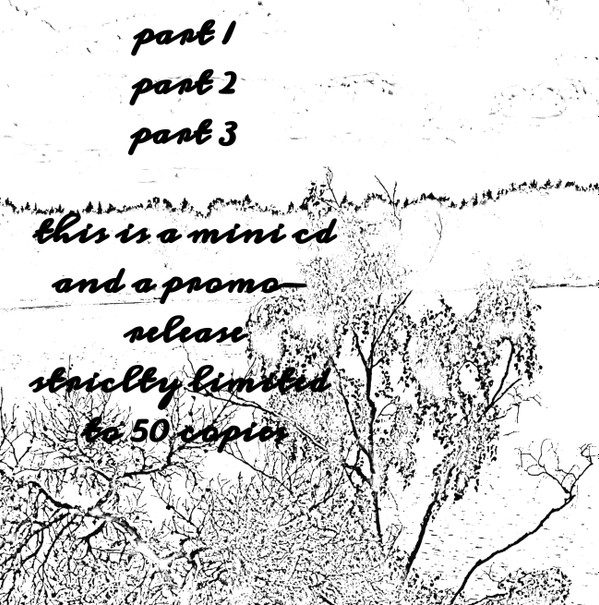 part 1
part 2
part 3
this is a mini cd
and a promo–
release
striclty limited
to 50 copies